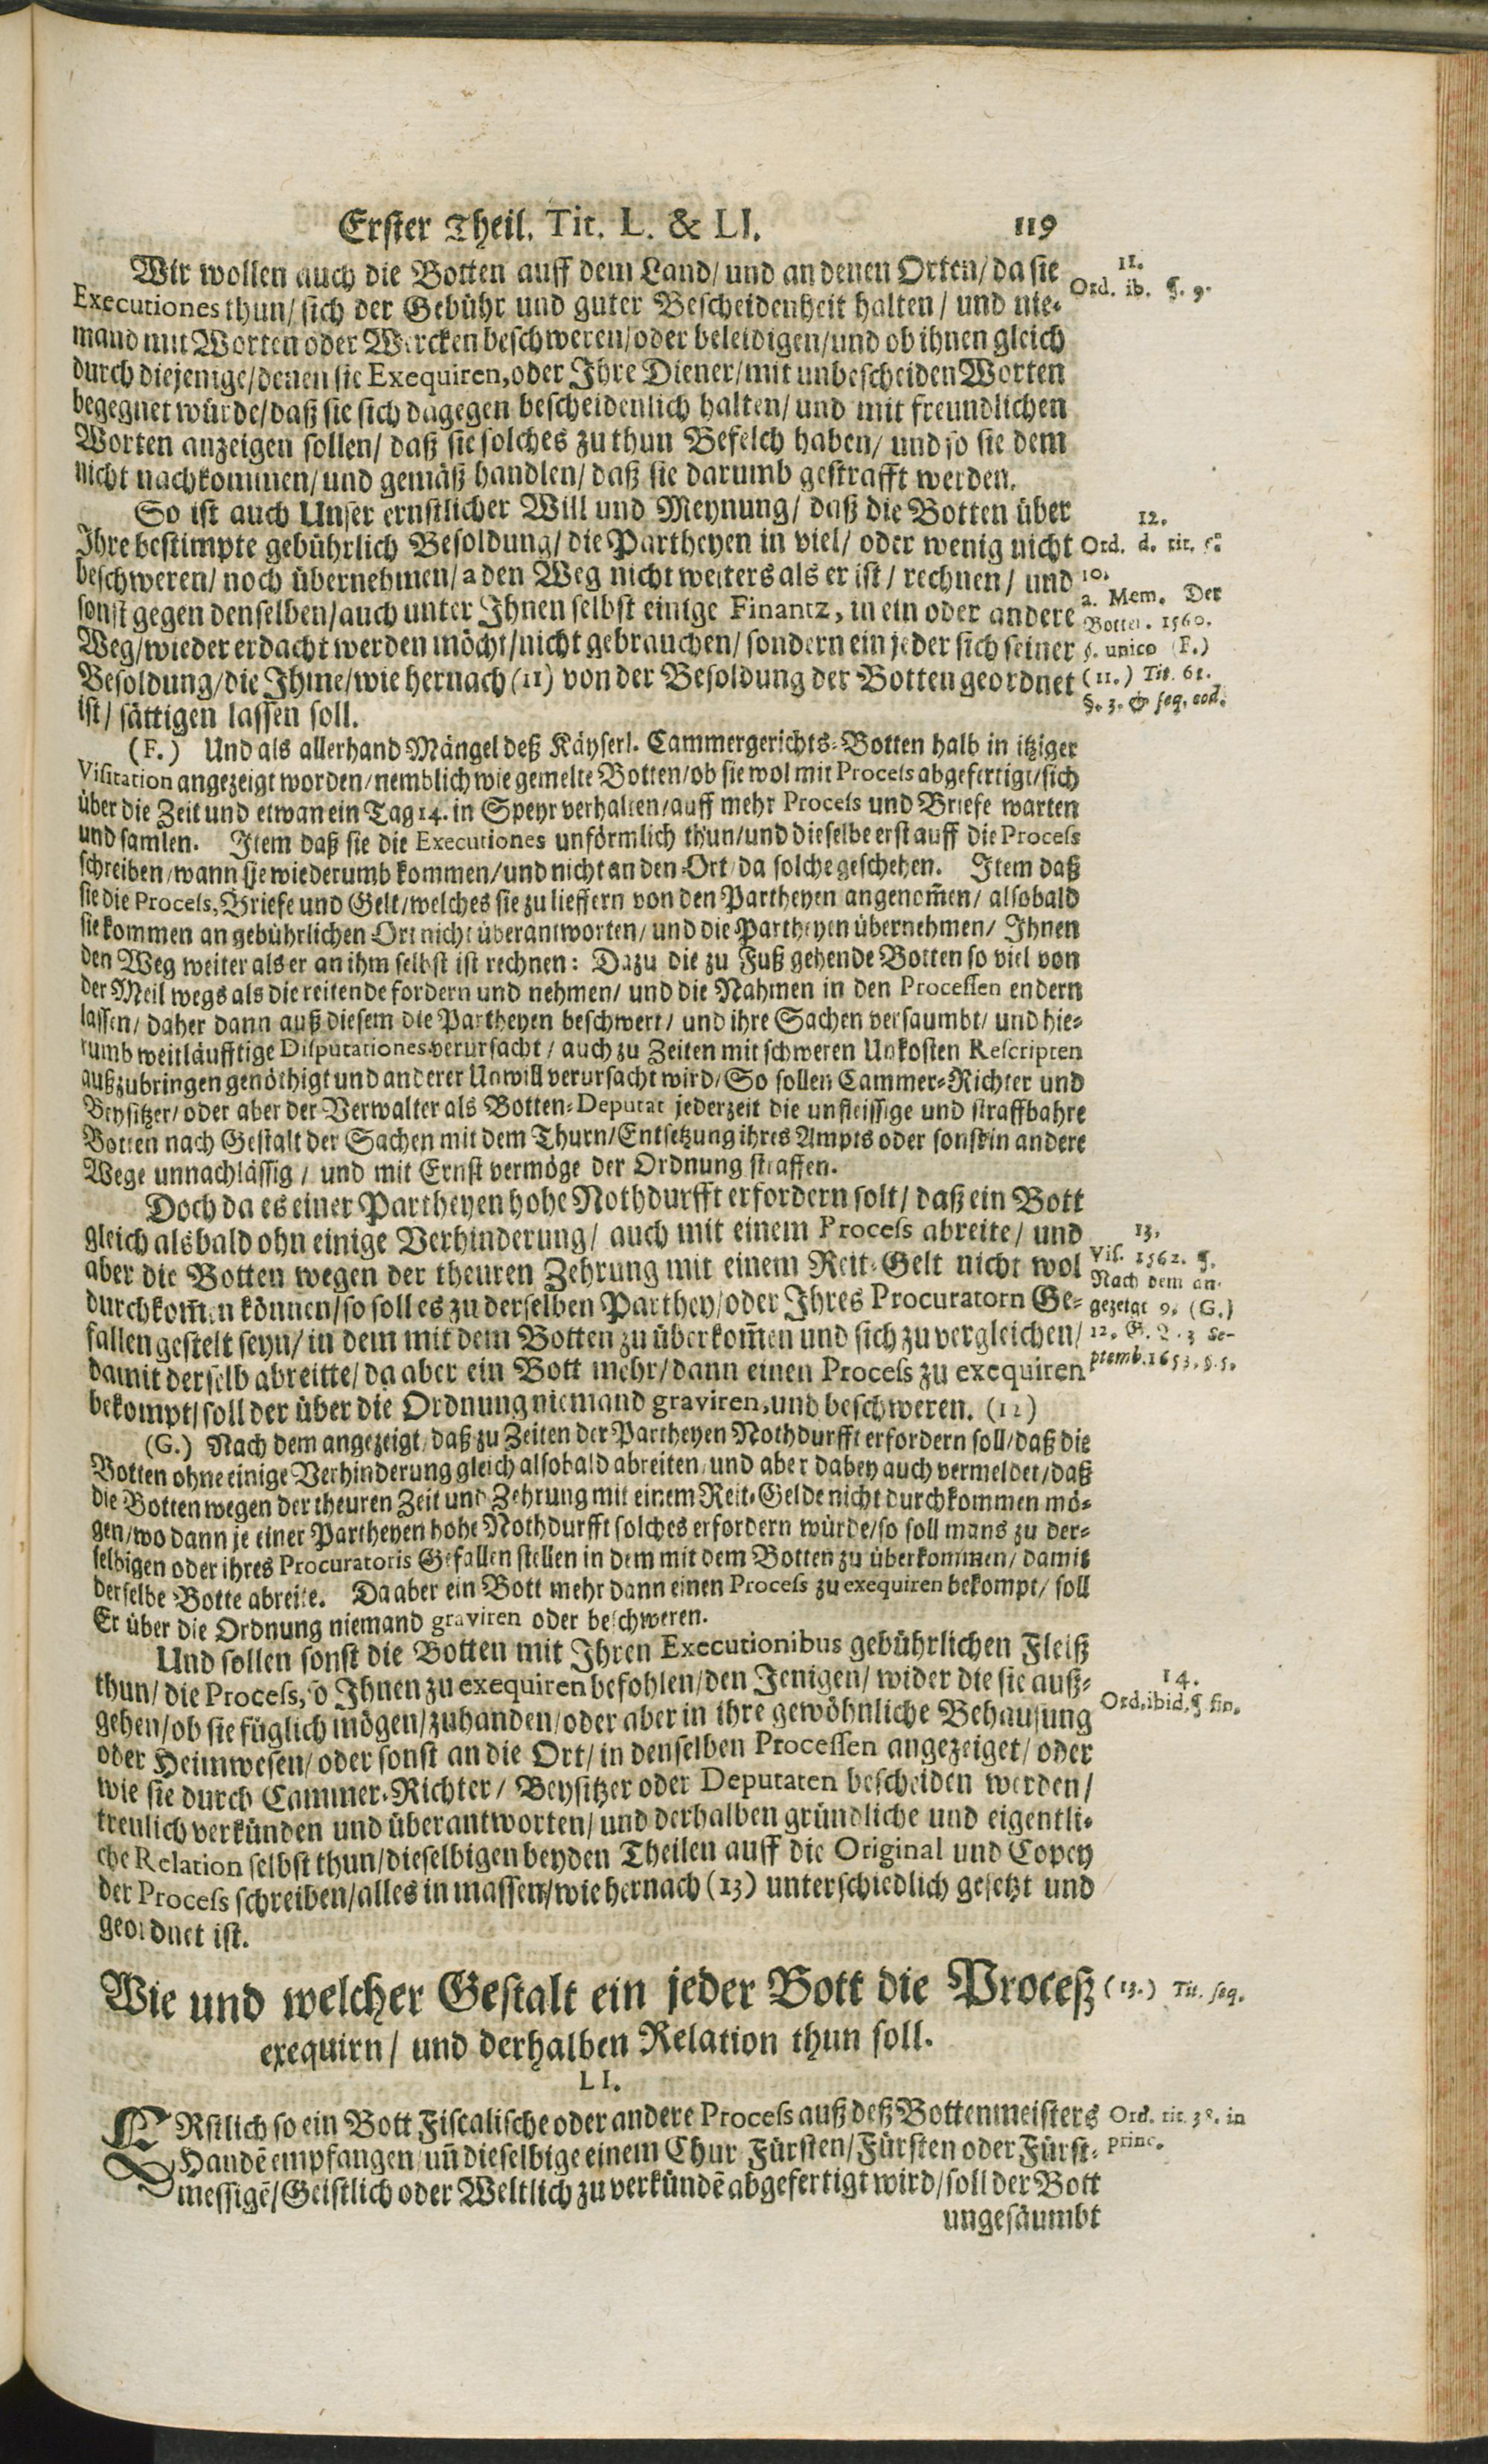 Erster Theil. Tit. L. & LI. 119
Wir wollen auch die Botten auff dem Land/ und an denen Orten/ da sie
Executiones thun/ sich der Gebühr und guter Bescheidenheit halten/ und nie-
mand mit Worten oder Wercken beschweren/ oder beleidigen/ und ob ihnen gleich
durch diejenige/ denen sie Exequiren, oder Ihre Diener/ mit unbescheiden Worten
begegnet würde/ daß sie sich dagegen bescheidenlich halten/ und mit freundlichen
Worten anzeigen sollen/ daß sie solches zu thun Befelch haben/ und so sie dem
nicht nachkommen/ und gemäß handlen/ daß sie darumb gestrafft werden.
11.
Ord. ib. §. 9.
So ist auch Unser ernstlicher Will und Meynung/ daß die Botten über
Ihre bestimpte gebührlich Besoldung/ die Partheyen in viel/ oder wenig nicht
beschweren/ noch übernehmen/ a den Weg nicht weiters als er ist/ rechnen/ und
sonst gegen denselben/ auch unter Ihnen selbst einige Finantz, in ein oder andere
Weg/ wie der erdacht werden möcht/ nicht gebrauchen/ sondern ein jeder sich seiner
Besoldung/ die Ihme/ wie hernach (11) von der Besoldung der Botten geordnet
ist/ sättigen lassen soll.
12.
Ord. d. tit. §.
10.
a. Mem. Der
Botten. 1560.
§. unico (F.)
(11.) Tit. 61.
§. 3. & seq. eod.
(F.) Und als allerhand Mängel deß Käyserl. Cammergerichts-Botten halb in itziger
Visitation angezeigt worden/ nemblich wie gemelte Botten/ ob sie wol mit Process abgefertigt/ sich
über die Zeit und etwan ein Tag 14. in Speyr verhalten/ auff mehr Process und Briefe warten
und samlen. Item daß sie die Executiones unförmlich thun/ und dieselbe erst auff die Process
schreiben/ wann sie wiederumb kommen/ und nicht an den Ort/ da solche geschehen. Item daß
sie die Process, Briefe und Gelt/ welches sie zu lieffern von den Partheyen angenom̄en/ alsobald
sie kommen an gebührlichen Ort nicht überantworten/ und die Partheyen übernehmen/ Ihnen
den Weg weiter als er an ihm selbst ist rechnen: Dazu die zu Fuß gehende Botten so viel von
der Meil wegs als die reitende fordern und nehmen/ und die Nahmen in den Processen endern
lassen/ daher dann auß diesem die Partheyen beschwert/ und ihre Sachen versaumbt/ und hie-
rumb weitläufftige Disputationes verursacht/ auch zu Zeiten mit schweren Unkosten Rescripten
außzubringen genöthigt und anderer Unwill verursacht wird/ So sollen Cammer-Richter und
Beysitzer/ oder aber der Verwalter als Botten-Deputat jederzeit die unfleissige und straffbahre
Botten nach Gestalt der Sachen mit dem Thurn/ Entsetzung ihres Ampts oder sonst in andere
Wege unnachlässig/ und mit Ernst vermöge der Ordnung straffen.
Doch da es einer Partheyen hohe Nothdurfft erfordern solt/ daß ein Bott
gleich alsbald ohn einige Verhinderung/ auch mit einem Process abreite/ und
aber die Botten wegen der theuren Zehrung mit einem Reit-Gelt nicht wol
durchkom̄en können/ so soll es zu derselben Parthey/ oder Ihres Procuratorn Ge-
fallen gestelt seyn/ in dem mit dem Botten zu überkom̄en und sich zu vergleichen/
damit derselb abreitte/ da aber ein Bott mehr/ dann einen Process zu exequiren
bekompt/ soll der über die Ordnung niemand graviren, und beschweren. (12)
13.
Vis. 1562. §.
Nach dem an-
gezeigt 9. (G.)
12. G. B. 3 Se-
ptemb. 1653. §. 5.
(G.) Nach dem angezeigt/ daß zu Zeiten der Partheyen Nothdurfft erfordern soll/ daß die
Botten ohne einige Verhinderung gleich alsobald abreiten/ und aber dabey auch vermeldet/ daß
die Botten wegen der theuren Zeit und Zehrung mit einem Reit-Gelde nicht durchkommen mö-
gen/ wo dann je einer Partheyen hohe Nothdurfft solches erfordern würde/ so soll mans zu der-
selbigen oder ihres Procuratoris Gefallen stellen in dem mit dem Botten zu überkommen/ damit
derselbe Botte abreite. Da aber ein Bott mehr dann einen Process zu exequiren bekompt/ soll
Er über die Ordnung niemand graviren oder beschweren.
Und sollen sonst die Botten mit Ihren Executionibus gebührlichen Fleiß
thun/ die Process, so Ihnen zu exequiren befohlen/ den Jenigen/ wider die sie auß-
gehen/ ob sie füglich mögen/ zuhanden/ oder aber in ihre gewöhnliche Behausung
oder Heimwesen/ oder sonst an die Ort/ in denselben Processen angezeiget/ oder
wie sie durch Cammer-Richter/ Beysitzer oder Deputaten bescheiden werden/
treulich verkünden und überantworten/ und derhalben gründliche und eigentli-
che Relation selbst thun/ dieselbigen beyden Theilen auff die Original und Copey
der Process schreiben/ alles in massen/ wie hernach (13) unterschiedlich gesetzt und
geordnet ist.
14.
Ord. ibid. § fin.
Wie und welcher Gestalt ein jeder Bott die Proceß
exequirn/ und derhalben Relation thun soll.
(13.) Tit. seq.
LI.
ERstlich so ein Bott Fiscalische oder andere Process auß deß Bottenmeisters
Handē empfangen/ uñ dieselbige einem Chur-Fürsten/ Fürsten oder Fürst-
messigē/ Geistlich oder Weltlich zu verkündē abgefertigt wird/ soll der Bott
Ord. tit. 38. in
princ.
ungesäumbt